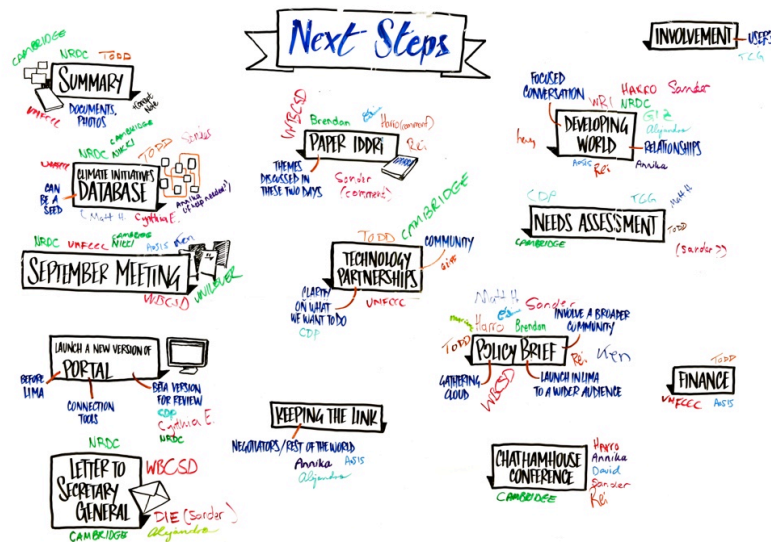 Next Steps
CAMBRIDGE
NRDC TODD
SUMMARY
UNFCCC
DOCUMENTS,
PHOTOS
CAMBRIDGE
NRDC NIKKI TODD
CLIMATE INITIATIVES
DATABASE
CAN
BE A
SEED
Matt H. Cynthia E.
Annika
(if help needed?)
NRDC UNFCCC CAMBRIDGE NICKI AOSIS Ken
SEPTEMBER MEETING
WBCSD UNILEVER
LAUNCH A NEW VERSION OF
PORTAL
BEFORE
LIMA
CONNECTION
TOOLS
BETA VERSION
FOR REVIEW
CDP
Cynthia E.
NRDC
NRDC
LETTER TO
SECRETARY
GENERAL
WBCSD
DIE (Sander)
CAMBRIDGE Alejandra
WBCSD
Brendan Harro (comment)
PAPER IDDRI
Rei
THEMES
DISCUSSED IN
THESE TWO DAYS
Sander
(comment)
TODD CAMBRIDGE
TECHNOLOGY
PARTNERSHIPS
COMMUNITY
CLARITY
ON WHAT
WE WANT TO DO
CDP
UNFCCC
KEEPING THE LINK
NEGOTIATORS/REST OF THE WORLD
Annika AOSIS
Alejandra
INVOLVEMENT
USERS
TCG
FOCUSED
CONVERSATION
WRI HARRO Sander
NRDC
GIZ
Alejandra
DEVELOPING
WORLD
RELATIONSHIPS
AOSIS Rei Annika
CDP TCG Matt H
NEEDS ASSESSMENT
CAMBRIDGE
TODD
(Sander?)
Matt H.
Sander
Harro Brendan
INVOLVE A BROADER
COMMUNITY
TODD
POLICY BRIEF
Rei Ken
GATHERING
CLOUD
WBCSD
LAUNCH IN LIMA
TO A WIDER AUDIENCE
TODD
FINANCE
UNFCCC AOSIS
CHATHAMHOUSE
CONFERENCE
CAMBRIDGE
HARRO
Annika
David
Sander
Rei